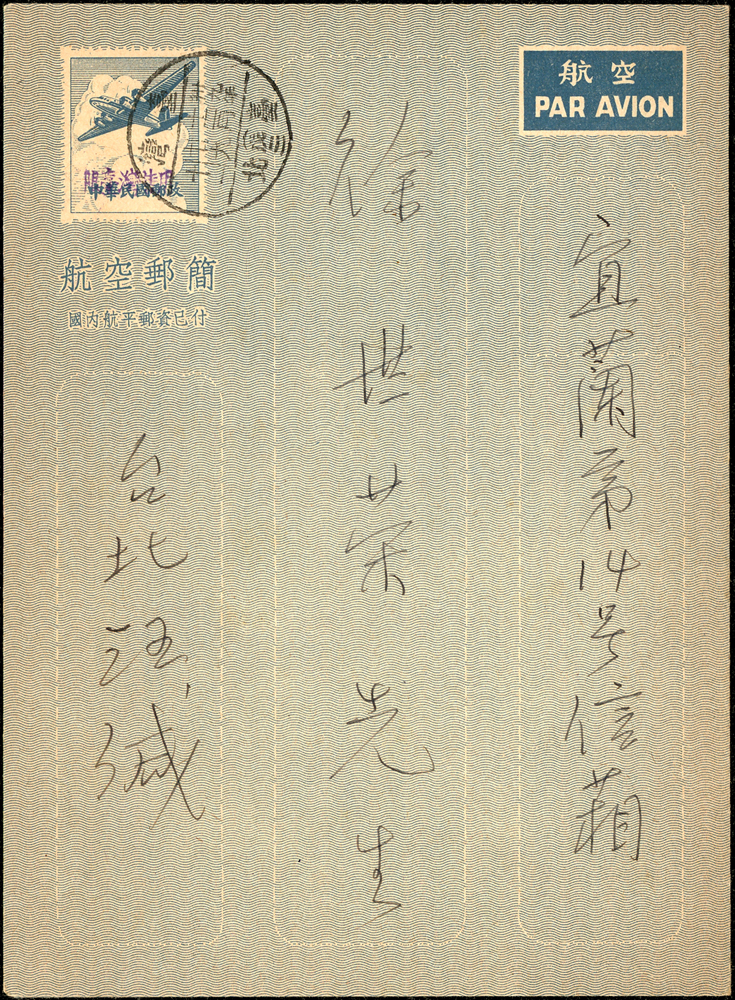 航空
PAR AVION
宜蘭第14号信箱
徐世荣先生
中華民國郵政
航空郵簡
國內航平郵資已付
台北汪缄